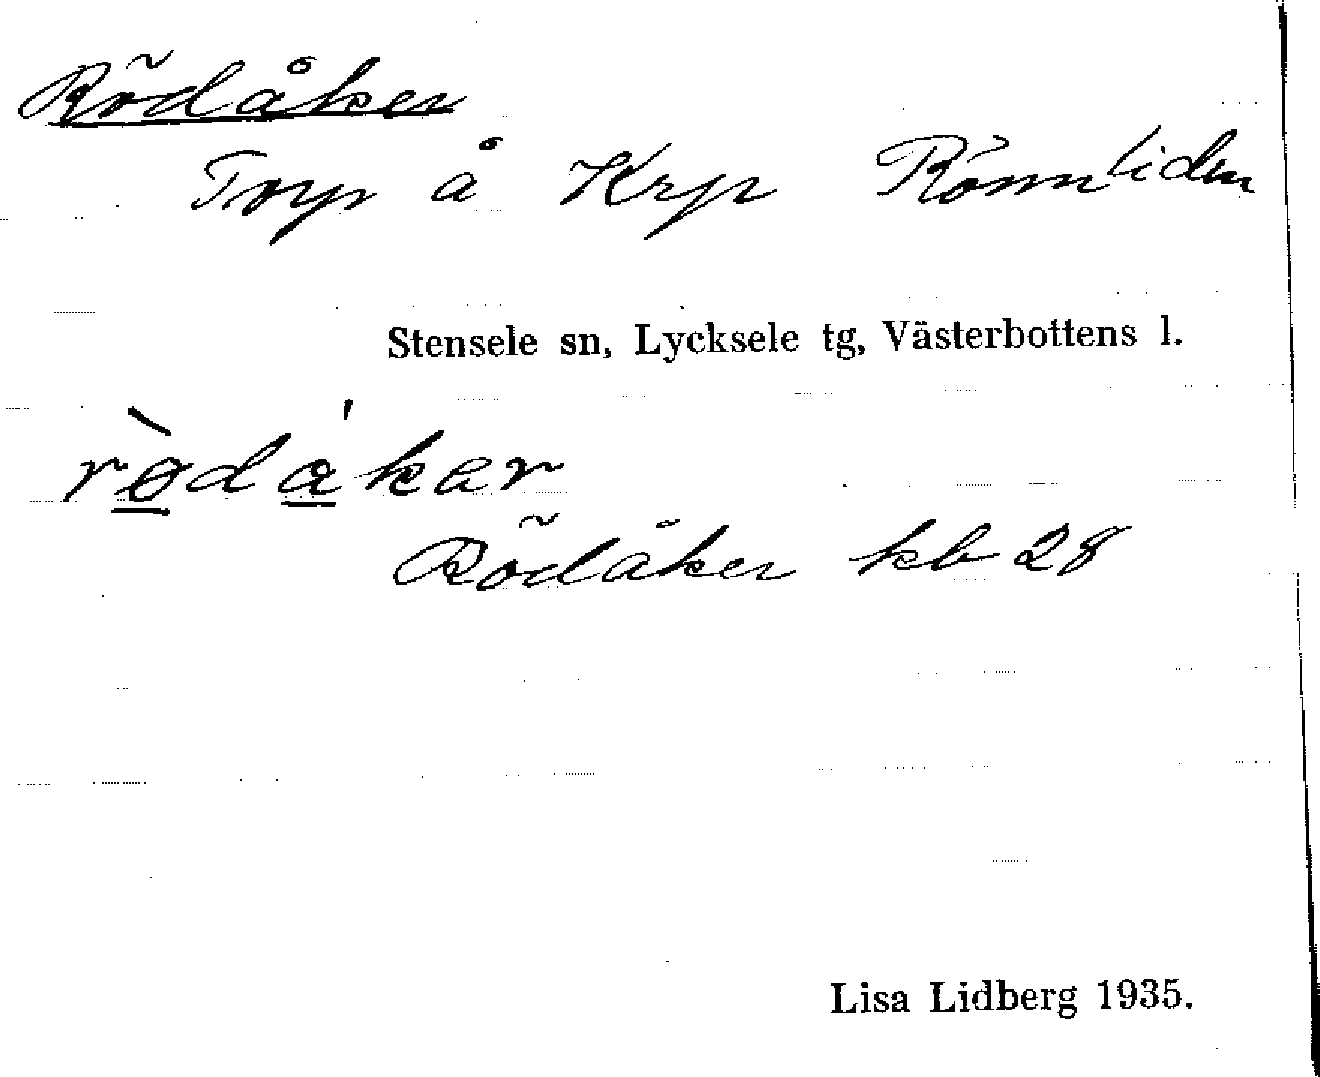 Rödåker
Torp å Krp Rönnliden
Stensele sn, Lycksele tg, Västerbottens l.
rø̲̀da̲̍kar
Rödåker kb 28
Lisa Lidberg 1935.